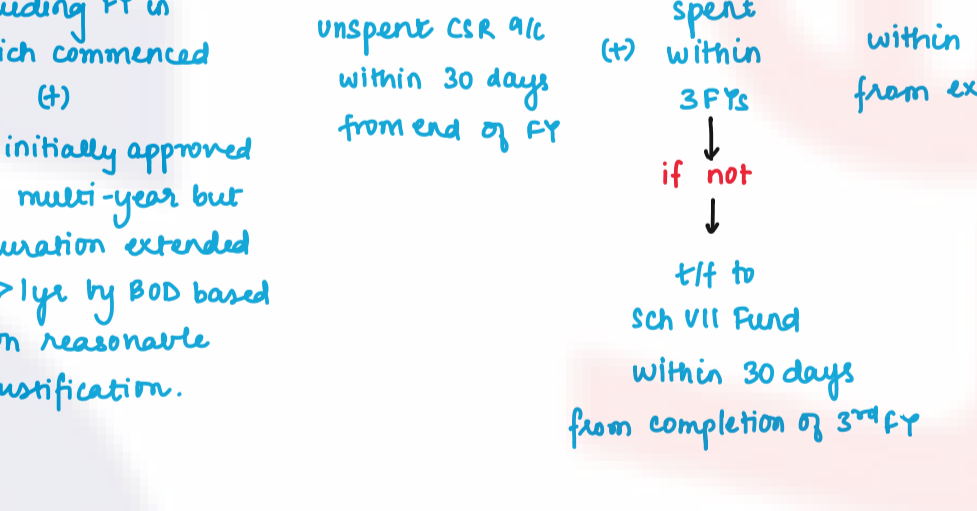 FY in
commenced
(+)
initially approved
multi-year but
extended
>1yr by BOD based
reasonable
unspent CSR a/c
within 30 days
from end of FY
spent
(+) within
3 FYs
if not
t/f to
Sch VII Fund
within 30 days
from completion of 3rd FY
within
from